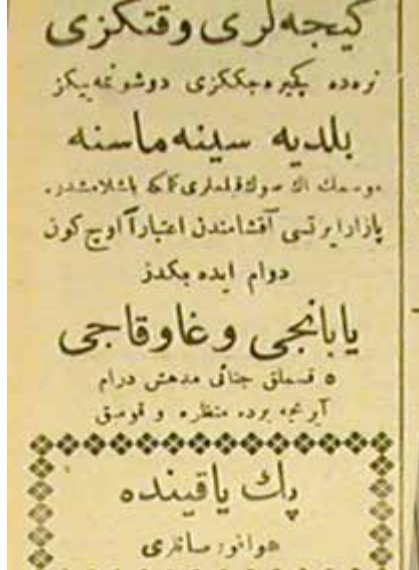 كيجه‌لرى وقتكزى
نره‌ده كچيره‌جككزى دوشونمه‌ييكز
بلديه سينه‌ماسنه
موسمك اك صوك فيلملرى كلمكه باشلامشدر.
پازارايرتسى آقشامندن اعتباراً اوچ كون
دوام ايده‌جكدر
يابانجى وغاوقاجى
٥ قسملق جنائى مدهش درام
آيريجه برده منظره و قوميق
پك ياقينده